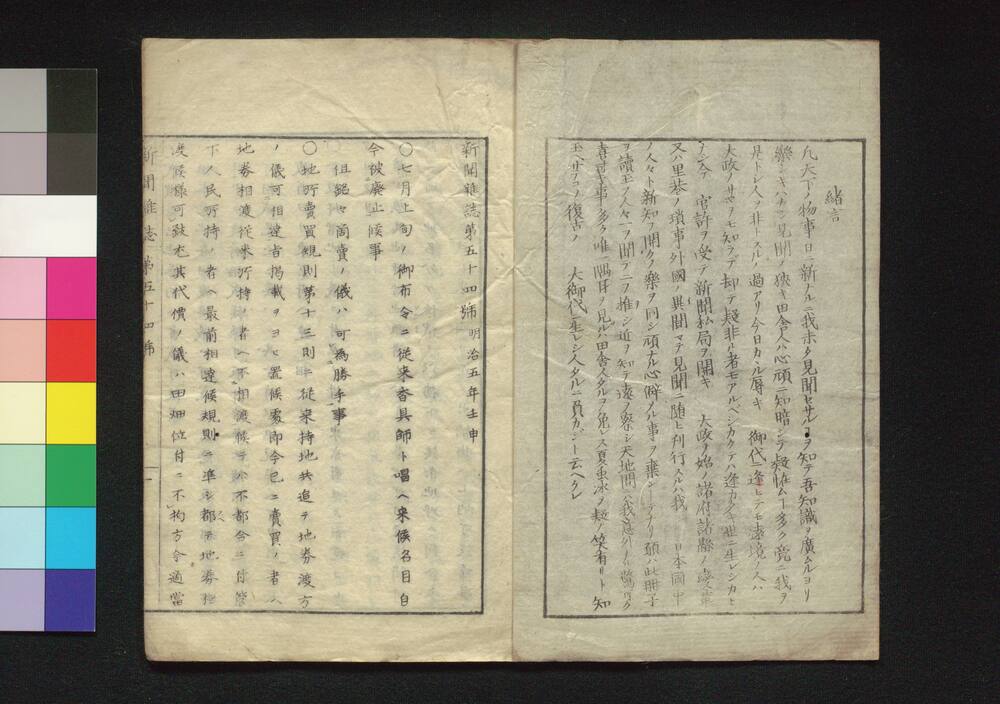 緒言
凡天下ノ物事日ニ新ノルニ我未タ見聞セサルヿヲ知テ吾知識ヲ廣ムルヨリ
樂シキハナシ見聞ノ狹キ田舎人ハ心頑ニ知暗シテ疑怪ムヿ多ク竟ニ我ヲ
是トシ人ヲ非トスルノ過アリ今日カヽル辱キ 御代ニ逢ヒテモ遠境ノ人ハ
大政ノサマヲモ知ラテ却テ疑非ル者モアルベシカクテハ逢カタキ世ニ生レシカヒ
ナシ今 官許ヲ受テ新聞私局ヲ開キ 大政ノ始メ諸府諸縣ノ
又ハ里巷ノ瑣事外國ノ異聞マテ見聞ニ随ヒ刊行スルハ我 日本國中
ノ人々ト新知ヲ開クノ樂ヲ同シ頑ナル心僻メル事ヲ棄シ 願ハ此冊子
ヲ讀玉フ人々一ヲ聞テ二ヲ推シ近ヲ知テ遠ヲ察シ天地間ハ我意外ノ驚クヘク
喜ヘキ事多ク唯一隅耳ヲ見ル田舎人タルヲ免レ夏虫冰ヲ疑ノ笑有リト知
玉ヘサラハコノ復古ノ 大御代生レシ人タルニ員カジト云ヘクレ
新聞雜誌第五十四號明治五年壬申
〇七月上旬ノ御布令ニ従来香具師ト唱ヘ来候名目自
今被廃止候事
但銘々商賣ノ儀ハ可為勝手事
〇地所賣買規則第十三則ニ従来持地共追テ地券渡方
ノ儀可相達旨掲載ヲヨヒ置候處即今已ニ賣買ノ者ハ
地券相渡従来所持ノ者ヘ不相渡候テハ不都合ニ付管
下人民所持ノ者ヘ最前相達候規則ニ準シ都テ地券相
渡候様可致尤其代價ノ儀ハ田畑位付ニ不拘方今適當
新聞雜誌 第五十四號 一